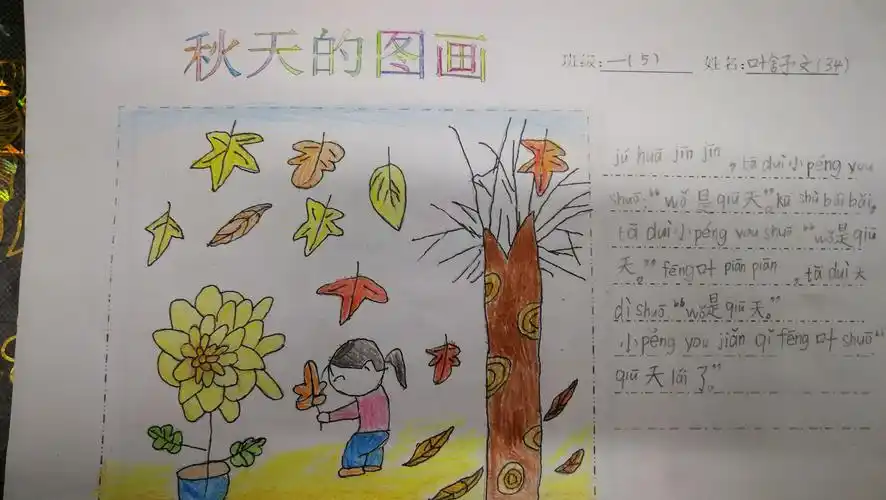 秋天的图画
班级:一(5) 姓名:叶舒文(34)
jú huā jīn jīn ,tā duì 小 péng you
shuō:“wǒ 是 qiū 天”。kū shù bāi bāi,
tā duì 小 péng you shuō “wǒ是 qiū
天。”fēng 叶 piān piān ,tā duì 大
dì shuō “wǒ是 qiū 天。”
小 péng you jiǎn qǐ fēng 叶 shuō“
qiū 天 lái 了”。